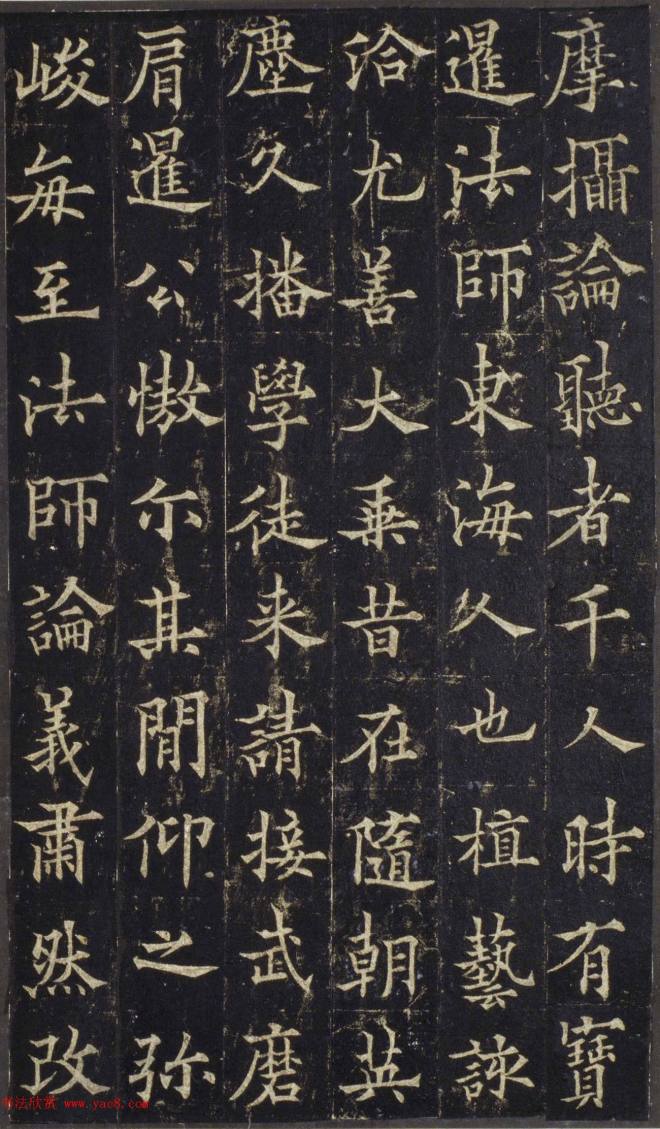 摩攝論聽者千人時有寶
暹法師東海人也植藝該
洽尤善大乗昔在隨朝英
塵久播學徒来請接武磨
肩暹公慠尒其閒仰之弥
峻每至法師論義肅然改
法欣赏 www.yac8.com